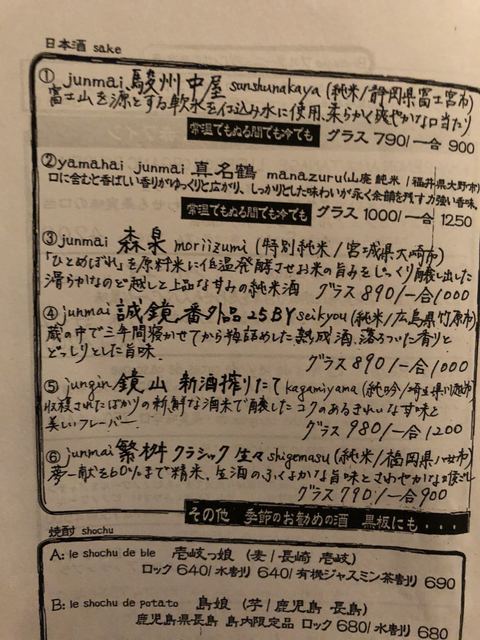 日本酒 sake
① junmai 駿州中屋 sunshunakaya (純米/静岡県富士宮市)
富士山を源とする軟水を仕込み水に使用、柔らかく爽やかな口当たり
常温でもぬる間でも冷でも グラス 790/一合 900
② yamahai junmai 真名鶴 manazuru (山廃 純米/福井県大野市)
口に含むと香ばしい香りがゆっくりと広がり、しっかりとした味わいが永く余韻を残す力強い香味。
常温でもぬる間でも冷でも グラス 1000/一合 1250
③ junmai 森泉 moriizumi (特別純米/宮城県大崎市)
「ひとめぼれ」を原料米に低温発酵させお米の旨みをじっくり醸し出した
滑らかなのど越しと上品な甘みの純米酒 グラス 890/一合 1000
④ junmai 誠鏡 番外品 25BY seikyou (純米/広島県竹原市)
蔵の中で三年間寝かせてから瓶詰めした熟成酒。落ちついた香りと
どっしりとした旨味。 グラス 890/一合 1000
⑤ jungin 鏡山 新酒搾りたて kagamiyama (純吟/埼玉県川越市)
収穫されたばかりの新鮮な酒米で醸したコクのあるきれいな甘味と
美しいフレーバー。 グラス 980/一合 1200
⑥ junmai 繁桝 クラシック 生々 shigemasu (純米/福岡県八女市)
夢一献を60%まで精米。生酒のふくよかな旨味とさわやかな喉ごし
グラス 790/一合 900
その他 季節のお勧めの酒 黒板にも・・・
焼酎 shochu
A: le shochu de ble 壱岐っ娘 (麦/長崎 壱岐)
ロック 640/ 水割り 640/ 有機ジャスミン茶割り 690
B: le shochu de potato 島娘 (芋/鹿児島 長島)
鹿児島県長島 島内限定品 ロック 680/ 水割り 680